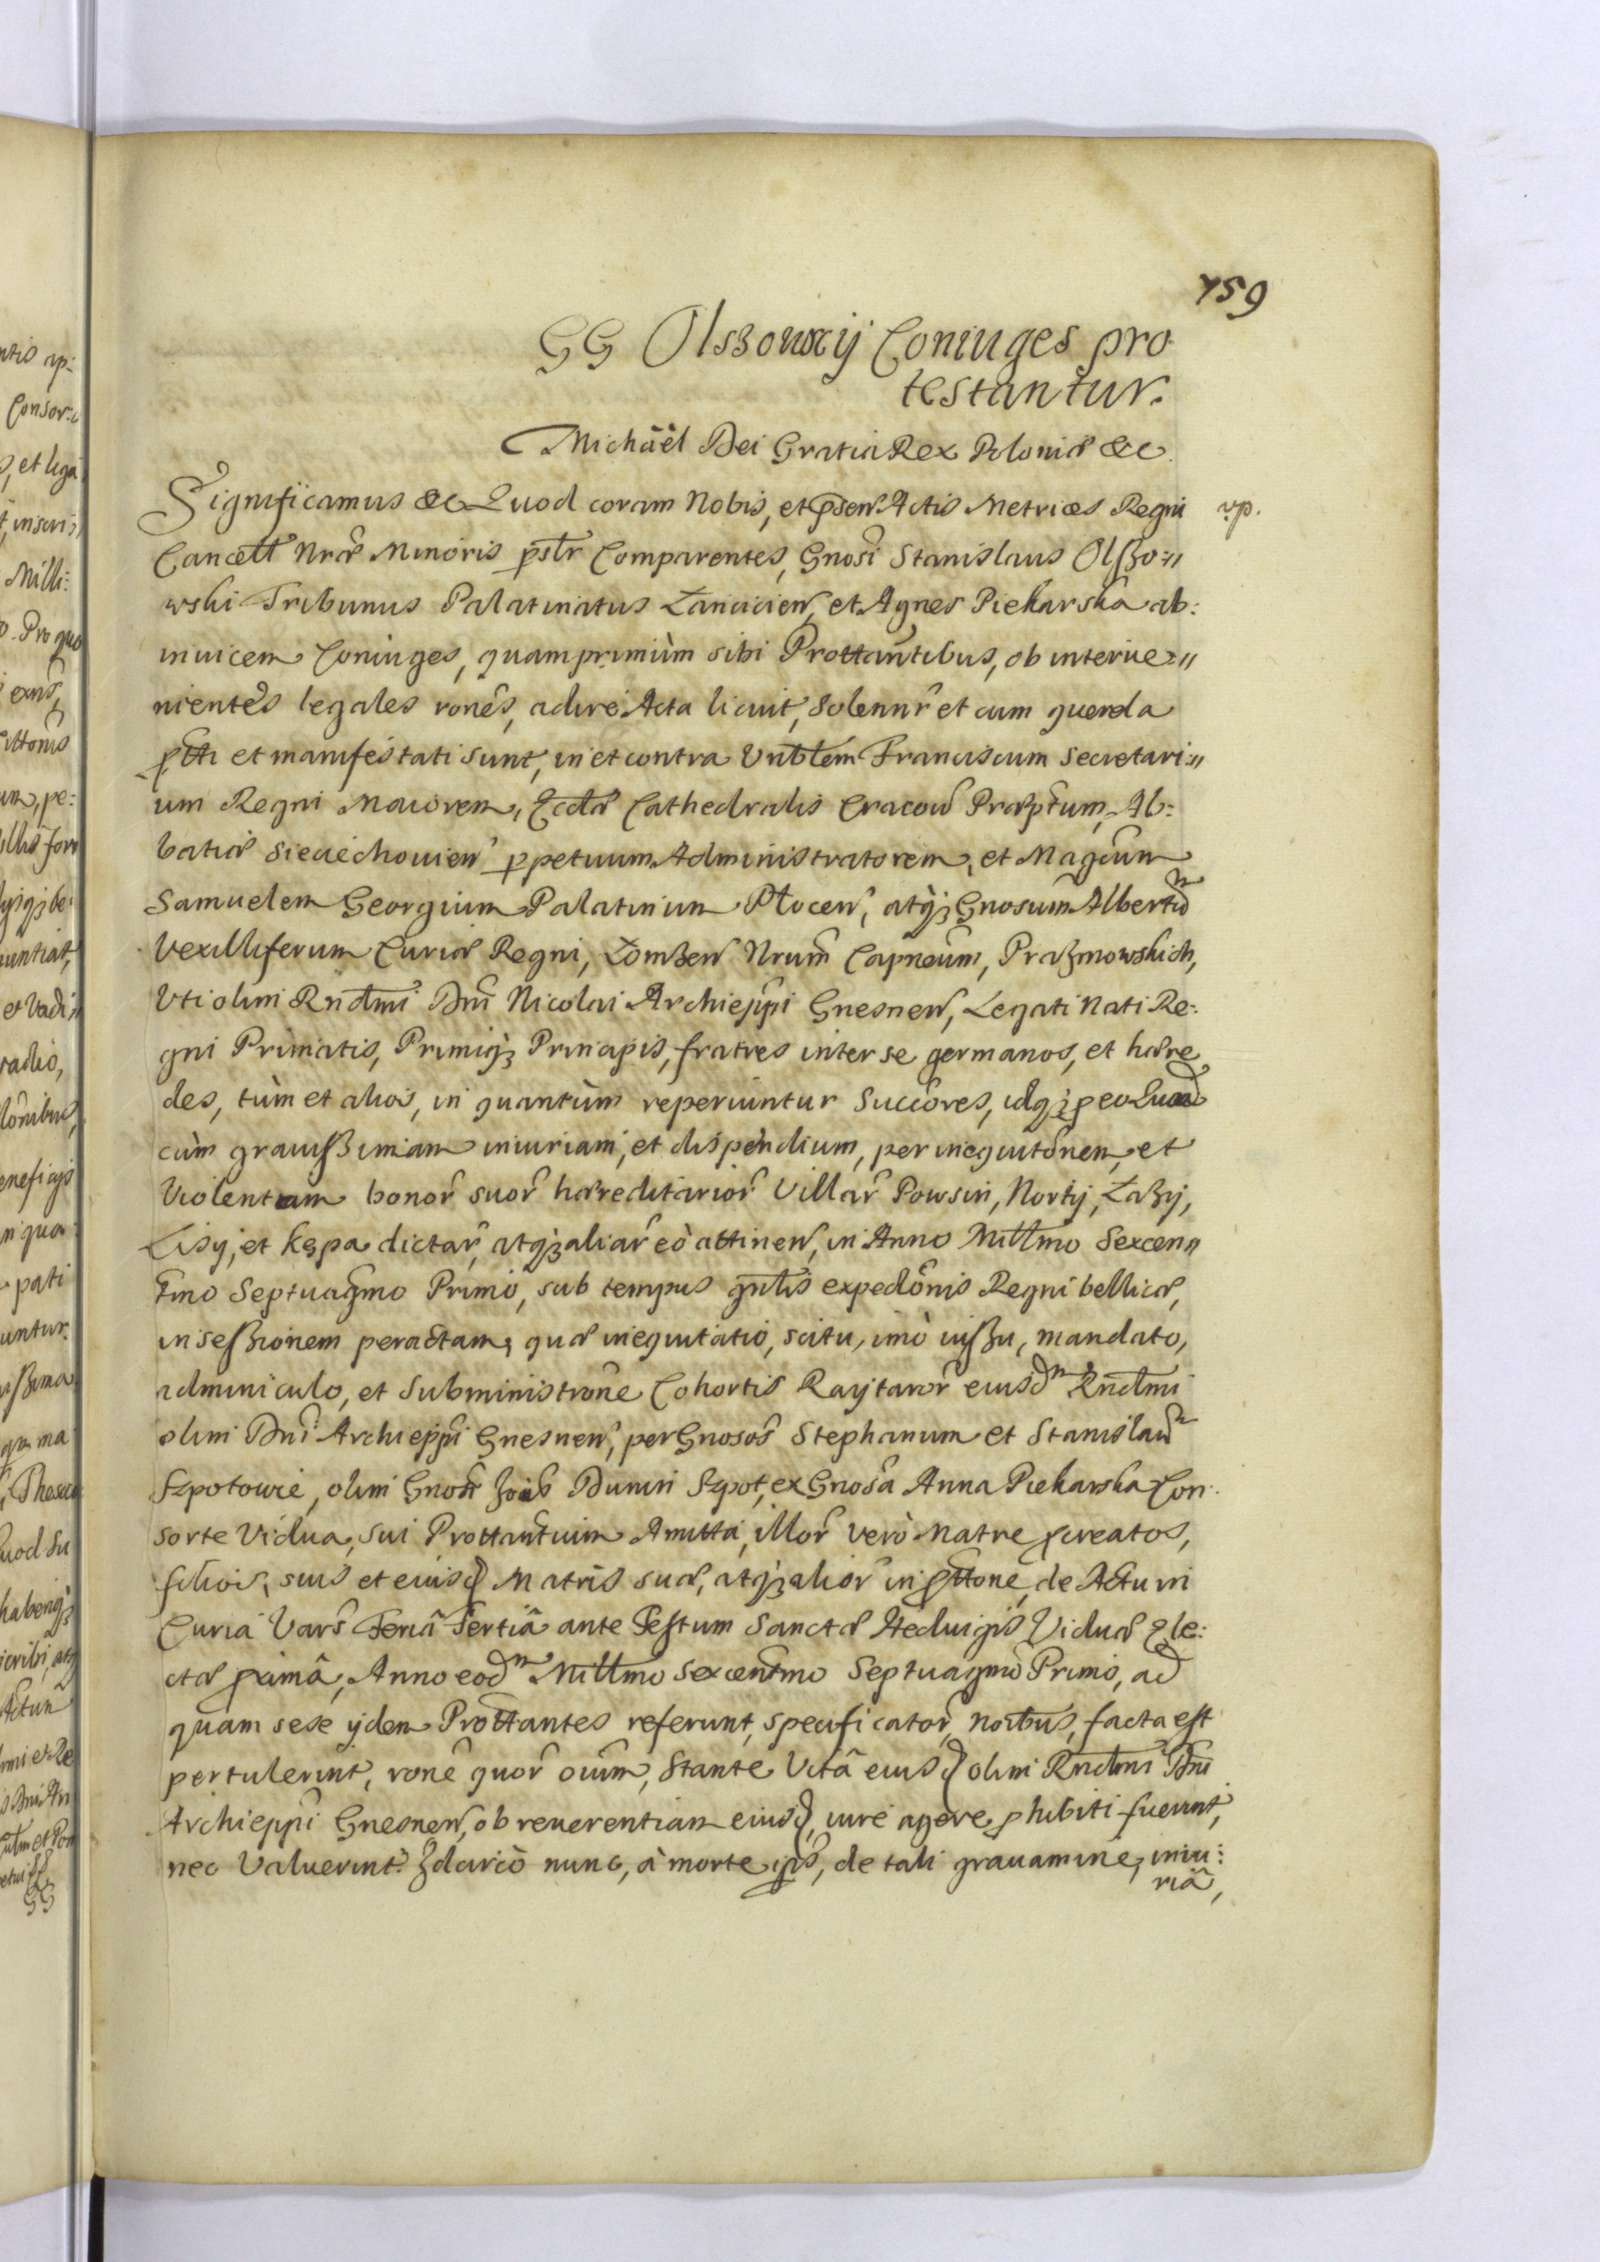 759
GG Olszowscÿ Coniuges pro
testantur.
Michäel Dei Gratia Rex Poloniæ &c.
Significamus &c Quod coram Nobis, et p̃sen̂ Actis Metrices Regni vp.
Cancell̃ Nræ Minoris p̃str̃ Comparentes, Gnosi Stanislaus Olszo=//
wski Tribunus Palatinatus Lanicien̂, et Agnes Piekarska ab:
inuicem Coniuges, quamprimùm sibi Prottantibus, ob interue=//
nientes legales rones, adire Acta licuit, Solennr̂ et cum querela
ptti et manifestati sunt, in et contra Unblem Franciscum Secretari=//
um Regni Maiorem, Eccłæ Cathedralis Cracoŵ Præptum, Ab:
batiæ Sieciechouien̂ ppetuum Administratorem, et Magcum
Samuelem Georgium Palatinum Płocen̂, atq̃ʒ Gnosum Albertũ
Vexilliferum Curiæ Regni, Lomzen̂ Nrum Capneum, Prazmowskich,
Uti olim Rndmi Dni Nicolai Archieppi Gnesnen̂, Legati Nati Re:
gni Primatis, Primiq̃ʒ Principis, fratres inter se germanos, et hære
des, tùm et alios, in quantùm reperiuntur Succores, idq̃ʒ p eo Quod
cùm grauißimam iniuriam, et dispendium, per inequitonem, et
Violentam bonor̂ suor̂ hæreditarior̂ Villar̂ Powsin, Norty, Łazy,
Lisy, et Kępa dictar̂, atq̃ʒ aliar̂ eò attinen̂, in Anno Millmo Sexcen//
tmo Septuagmo Primo, sub tempus gnlis expedonis Regni bellicæ,
inseßionem peractam, quæ inequitatio, scitu, imò iußu, mandato,
adminiculo, et Subministrone Cohortis Raytaror̂ eiusdm Rndmi
olim Dni Archieppi Gnesnen̂, per Gnosos Stephanum et Stanislaũ
Szpotowie, olim Gnosi Joãis Dunin Szpot, ex Gnosa Anna Piekarska Con
sorte Vidua, sui Prottantium Amitta, illor̂ verò Matre pcreatos,
filios, suis et eiusd Matris suæ, atq̃ʒ alior̂ in pttone, de Actu in
Curia Vars̃ Feriâ Tertiâ ante Festum Sanctæ Heduigis Viduæ Ele:
ctæ pximâ, Anno eodm Millmo Sexcentmo Septuagmo Primo, ad
quam sese ijdem Prottantes referunt, specificator̂, noibus, facta est
pertulerint, rone quor̂ oium, Stante Vitâ eiusd olim Rndmi Dni
Archieppi Gnesnen̂, ob reuerentiam eiusd, iure agere phibiti fuerint,
nec Valuerint. Idcircò nunc, à morte ipis, de tali grauamine, iniu:
riâ,